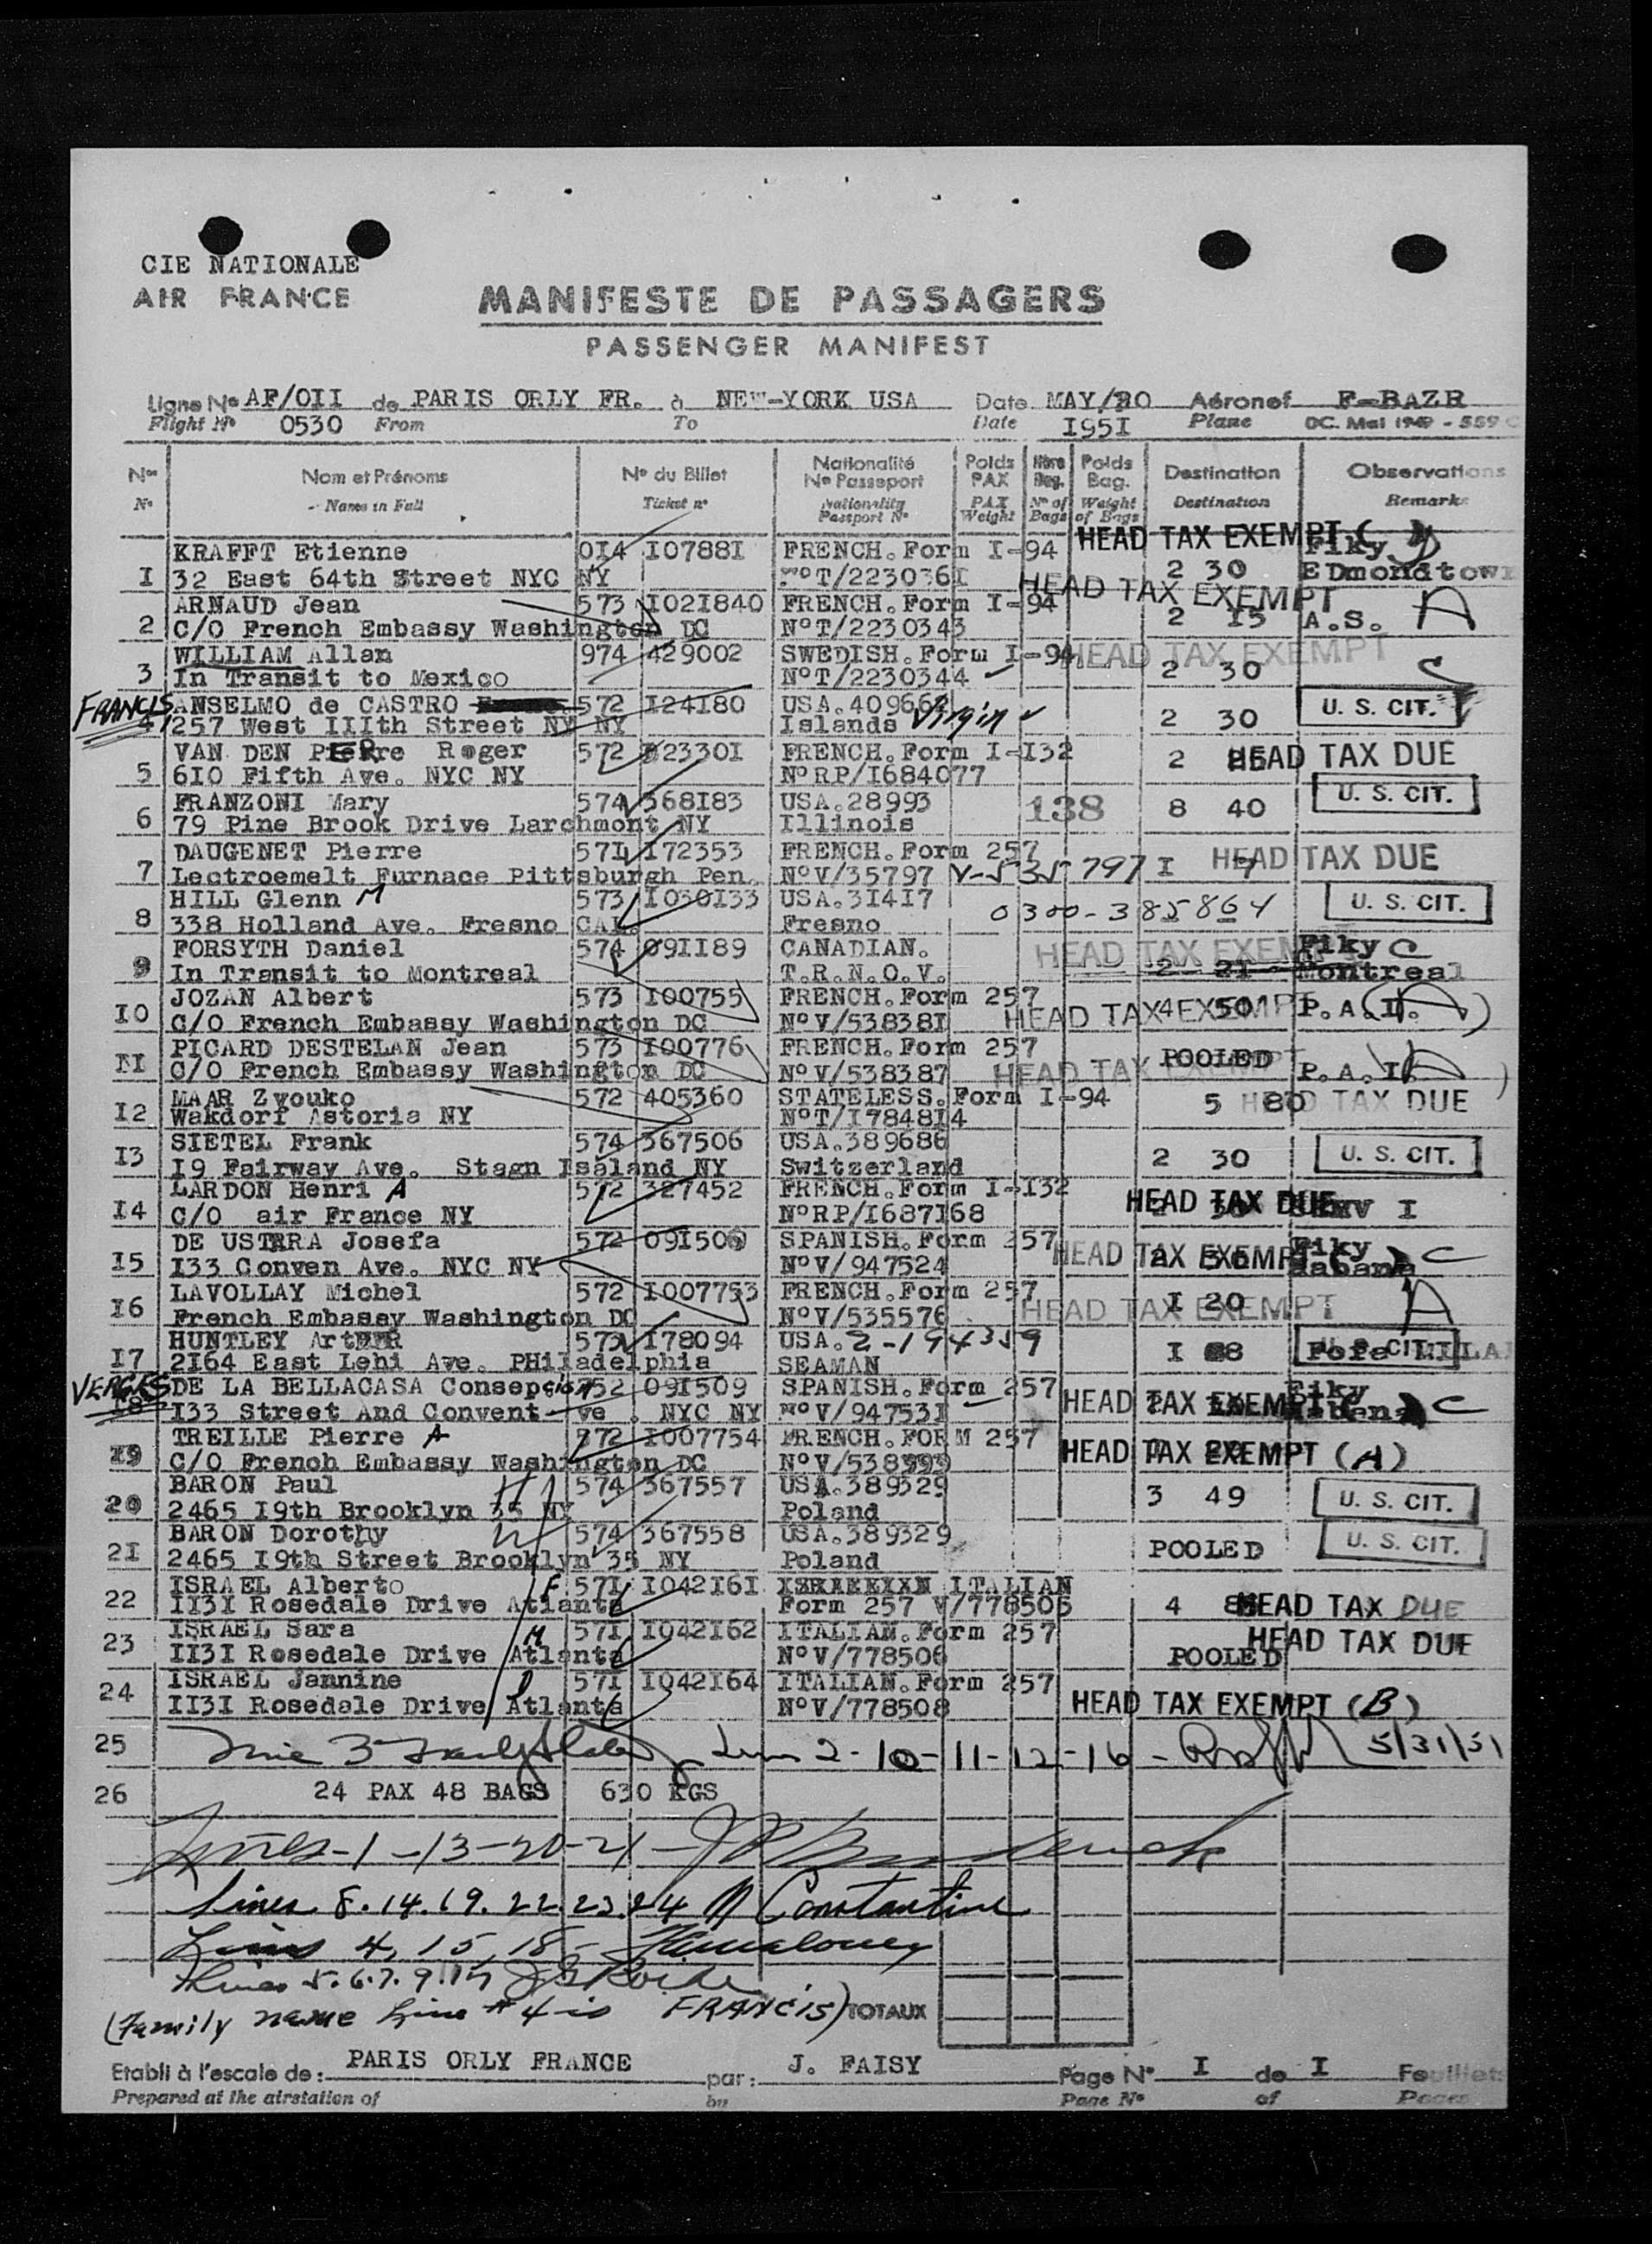 CIE NATIONALE
AIR FRANCE
MANIFESTE DE PASSAGERS
PASSENGER MANIFEST
Ligne No AF/OII de PARIS ORLY FR. à NEW-YORK USA Date MAY/30 Aéronef F-BAZR
Flight No 0530 From To Date I95I Plane OC. Mai 1949 - 559 C
Nos Nom et Prénoms No du Billet Nationalité No Passeport Poids PAX Nbre Bag. Poids Bag. Destination Observations
No Names in Full Ticket no Nationality Passport No PAX Weight No of Bags Weight of Bags Destination Remarks
HEAD TAX EXEMPT (
KRAFFT Etienne 0I4 I0788I FRENCH.Form I-94 Fiky
I 32 East 64th Street NYC NY NoT/223036I 2 30 EDmondtown
HEAD TAX EXEMPT
ARNAUD Jean 573 I02I840 FRENCH.Form I-94
2 C/O French Embassy Washington DC NoT/2230343 2 I5 A.S. A
WILLIAM Allan 974 429002 SWEDISH.Form I-94 HEAD TAX EXEMPT
3 In Transit to Mexico NoT/2230344 2 30 C
FRANCIS ANSELMO de CASTRO 572 I24I80 USA.409662 U. S. CIT.
4 257 West IIIth Street NY NY Islands Virgin 2 30
VAN DEN PIERre Roger 572 2330I FRENCH.Form I-I32 HEAD TAX DUE
5 6I0 Fifth Ave. NYC NY NoRP/I684077 2
FRANZONI Mary 574 368I83 USA.28993 138 U. S. CIT.
6 79 Pine Brook Drive Larchmont NY Illinois 8 40
DAUGENET Pierre 57I I72353 FRENCH.Form 257 HEAD TAX DUE
7 Lectroemelt Furnace Pittsburgh Pen. NoV/35797 V-535797 I
HILL Glenn M 573 I030I33 USA.3I4I7 U. S. CIT.
8 338 Holland Ave. Fresno CAL. Fresno 0300-385864
FORSYTH Daniel 574 09II89 CANADIAN. HEAD TAX EXEMPT Fiky C
9 In Transit to Montreal T.R.N.O.V. 2 2I Montreal
JOZAN Albert 573 I00755 FRENCH.Form 257
I0 C/O French Embassy Washington DC NoV/53838I HEAD TAX EXEMPT 4 50 P.A.I. (A)
PICARD DESTELAN Jean 573 I00776 FRENCH.Form 257 POOLED
II C/O French Embassy Washington DC NoV/538387 HEAD TAX EXEMPT P.A.I. (A)
MAAR Zvouko 572 405360 STATELESS.Form I-94 HEAD TAX DUE
I2 Wakdorf Astoria NY NoT/I7848I4 5 80
SIETEL Frank 574 367506 USA.389686 U. S. CIT.
I3 I9 Fairway Ave. Stagn Isaland NY Switzerland 2 30
LARDON Henri A 572 327452 FRENCH.Form I-I32 HEAD TAX DUE
I4 C/O air France NY NoRP/I687I68
DE USTARA Josefa 572 09I50 SPANISH.Form 257 HEAD TAX EXEMPT Fiky C
I5 I33 Conven Ave. NYC NY NoV/947524 Habana
LAVOLLAY Michel 572 I007753 FRENCH.Form 257 A
I6 French Embassy Washington DC NoV/535576 HEAD TAX EXEMPT I 20
HUNTLEY ArtHER 573 I78094 USA. 2-194359 U. S. CIT.
I7 2I64 East Lehi Ave. PHiladelphia SEAMAN I 8
VERGES DE LA BELLACASA Consepcion 752 09I509 SPANISH.Form 257 HEAD TAX EXEMPT ( Fiky C
I8 I33 Street And Convent ve . NYC NY NoV/94753I Habana
TREILLE Pierre A 572 I007754 FRENCH.FORM 257 HEAD TAX EXEMPT (A)
I9 C/O French Embassy Washington DC NoV/538393
BARON Paul H 574 367557 USA.389329 3 49 U. S. CIT.
20 2465 I9th Brooklyn 35 NY Poland
BARON Dorothy W 574 367558 USA.389329 U. S. CIT.
2I 2465 I9th Street Brooklyn 35 NY Poland POOLED
ISRAEL Alberto F 57I I042I6I ITALIAN
22 II3I Rosedale Drive Atlanta Form 257 V/778505 4 HEAD TAX DUE
ISRAEL Sara M 57I I042I62 ITALIAN.Form 257 HEAD TAX DUE
23 II3I Rosedale Drive Atlanta NoV/778506 POOLED
ISRAEL Jannine 57I I042I64 ITALIAN.Form 257
24 II3I Rosedale Drive Atlanta NoV/778508 HEAD TAX EXEMPT (B)
25 Line 3 Lines 2-10-11-12-16- 5/31/51
26 24 PAX 48 BAGS 630 KGS
Lines-1-13-20-21-
Lines 8.14.19.22.23.24 Constantine
Lines 4, 15, 18-
Lines 5.6.7.9.17
(Family name Line #4 is FRANCIS) TOTAUX
Etabli à l'escale de: PARIS ORLY FRANCE par: J. FAISY Page No I de I Feuillets
Prepared at the airstation of by Page No of Pages